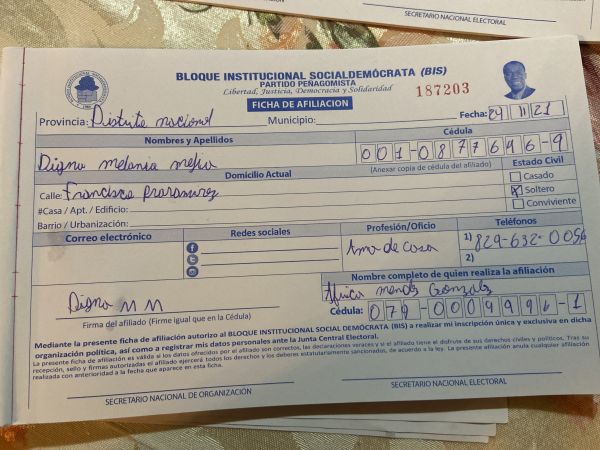 SECRETARIO NACIONAL ELECTORAL
BLOQUE INSTITUCIONAL SOCIALDEMÓCRATA (BIS)
PARTIDO PEÑAGOMISTA
Libertad, Justicia, Democracia y Solidaridad
187203
FICHA DE AFILIACION
Provincia: Distrito nacional Municipio: Fecha: 24 11 21
Nombres y Apellidos Cédula
Digna melania mejia 001-0877696-9
(Anexar copia de cédula del afiliado)
Domicilio Actual Estado Civil
Calle: Francisco Casado
#Casa / Apt. / Edificio: Soltero
Barrio / Urbanización: Conviviente
Correo electrónico Redes sociales Profesión/Oficio Teléfonos
Ama de casa 1) 829-632-0056
2)
Nombre completo de quien realiza la afiliación
Digna M M
Firma del afiliado (Firme igual que en la Cédula) Cédula: 079-0009996-1
Mediante la presente ficha de afiliación autorizo al BLOQUE INSTITUCIONAL SOCIAL DEMÓCRATA (BIS) a realizar mi inscripción única y exclusiva en dicha
organización política, así como a registrar mis datos personales ante la Junta Central Electoral.
La presente ficha de afiliación es válida si los datos ofrecidos por el afiliado son correctos, las declaraciones veraces y si el afiliado tiene el disfrute de sus derechos civiles y políticos. Tras su
recepción, sello y firmas autorizadas el afiliado ejercerá todos los derechos y los deberes estatutariamente sancionados, de acuerdo a la ley. La presente afiliación anula cualquier afiliación
realizada con anterioridad a la fecha que aparece en esta ficha.
SECRETARIO NACIONAL DE ORGANIZACIÓN SECRETARIO NACIONAL ELECTORAL